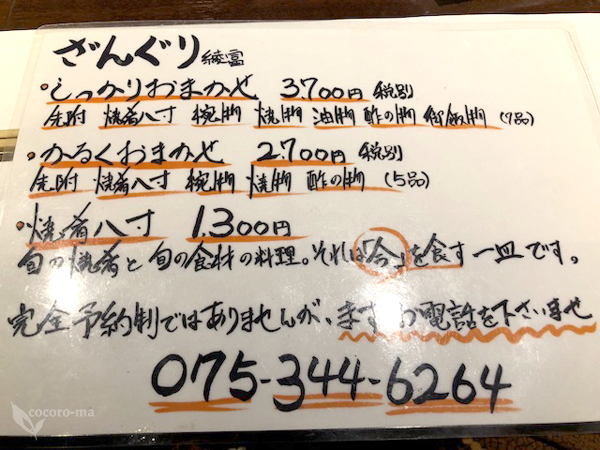 ざんぐり 綾富
・しっかりおまかせ 3,700円 税別
先附 焼肴八寸 椀物 焼物 油物 酢の物 御飯物 (7品)
・かるくおまかせ 2,700円 税別
先附 焼肴八寸 椀物 焼物 酢の物 (5品)
・焼肴八寸 1,300円
旬の焼肴と旬の食材の料理。それは「今」を食す一皿です。
完全予約制ではありませんが、まずお電話を下さいませ
075-344-6264
cocoro-ma